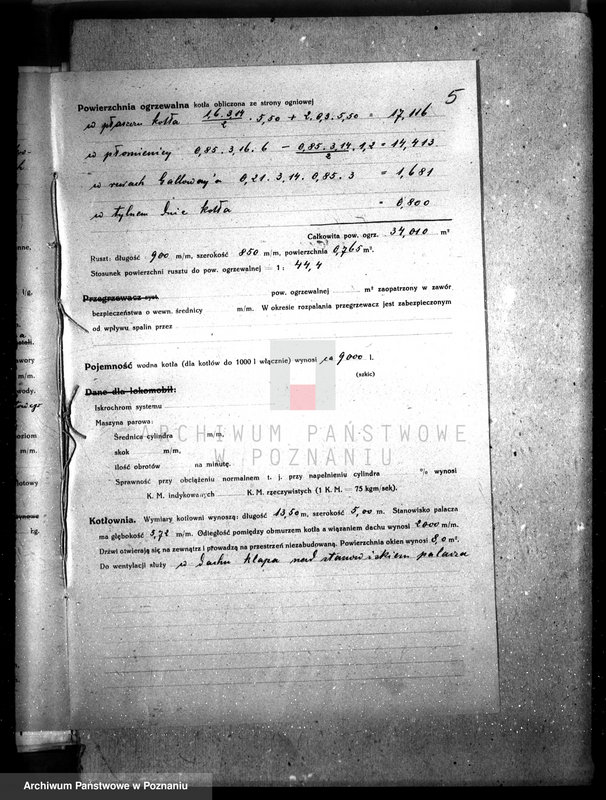 5
Powierzchnia ogrzewalna kotła obliczona ze strony ogniowej
w płaszczu kotła 1,6 . 3,14 / 2 . 5,50 + 2 . 0,3 . 5,50 = 17,116
w płomienicy 0,85 . 3,16 . 6 – 0,85 . 3,14 / 2 . 1,2 = 14,413
w rurach Galloway'a 0,21 . 3,14 . 0,85 . 3 = 1,681
w tylnem dnie kotła = 0,800
Całkowita pow. ogrz. 34,010 m²
Ruszt: długość 900 m/m, szerokość 850 m/m, powierzchnia 0,765 m².
Stosunek powierzchni rusztu do pow. ogrzewalnej = 1 : 44,4
Przegrzewacz syst. pow. ogrzewalnej m² zaopatrzony w zawór
bezpieczeństwa o wewn. średnicy m/m. W okresie rozpalania przegrzewacz jest zabezpieczonym
od wpływu spalin przez
Pojemność wodna kotła (dla kotłów do 1000 l włącznie) wynosi ca 9000 l.
(szkic)
Dane dla lokomobil:
Iskrochrom systemu
Maszyna parowa:
Średnica cylindra m/m.
skok m/m,
ilość obrotów na minutę.
Sprawność przy obciążeniu normalnem t. j. przy napełnieniu cylindra % wynosi
K. M. indykowanych K. M. rzeczywistych (1 K. M. = 75 kgm/sek).
Kotłownia. Wymiary kotłowni wynoszą: długość 13,50 m, szerokość 5,00 m. Stanowisko palacza
ma głębokość 3,72 m/m. Odległość pomiędzy obmurzem kotła a wiązaniem dachu wynosi 2000 m/m.
Drzwi otwierają się na zewnątrz i prowadzą na przestrzeń niezabudowaną. Powierzchnia okien wynosi 8,0 m².
Do wentylacji służy w dachu klapa nad stanowiskiem palacza
ARCHIWUM PAŃSTWOWE
W POZNANIU
Archiwum Państwowe w Poznaniu